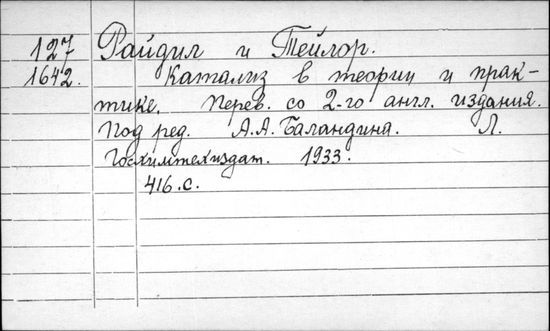 127 Райдил и Тейлор.
1642. Катализ в теории и прак-
тике. Перев. со 2-го англ. издания.
Под ред. А.А. Баландина. Л.
Госхимтехиздат. 1933.
416 с.